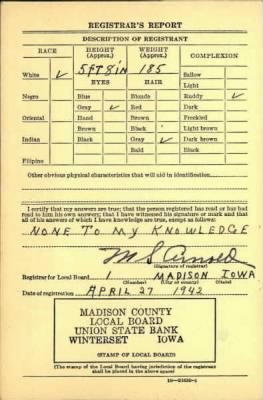 REGISTRAR'S REPORT
DESCRIPTION OF REGISTRANT
RACE HEIGHT (Approx.) WEIGHT (Approx.) COMPLEXION
White ✓ 5 FT 8 IN 185 Sallow
Light
EYES HAIR
Negro Blue Blonde Ruddy ✓
Gray ✓ Red Dark
Oriental Hand Brown Freckled
Brown Black Light brown
Indian Black Gray ✓ Dark brown
Bald Black
Filipino
Other obvious physical characteristics that will aid in identification
I certify that my answers are true; that the person registered has read or has had
read to him his own answers; that I have witnessed his signature or mark and that
all of his answers of which I have knowledge are true, except as follows:
NONE TO MY KNOWLEDGE
M S Arnold
(Signature of registrar)
Registrar for Local Board 1 MADISON IOWA
(Number) (City or county) (State)
Date of registration APRIL 27 1942
MADISON COUNTY
LOCAL BOARD
UNION STATE BANK
WINTERSET IOWA
(STAMP OF LOCAL BOARD)
(The stamp of the Local Board having jurisdiction of the registrant
shall be placed in the above space)